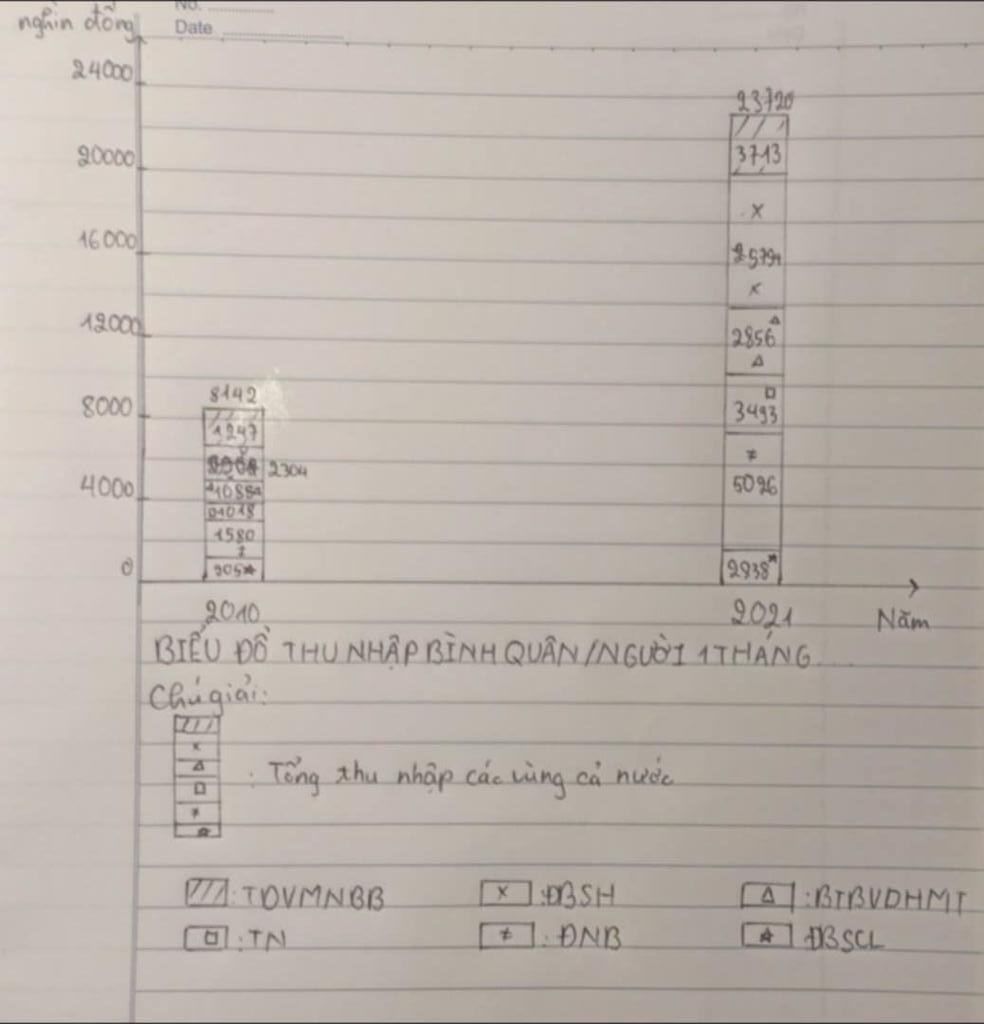 No. ............
nghìn đồng
Date ............
24000
20000
16000
12000
8000
4000
0
8142
1247
2304
1088
01018
1580
≠
905☆
2010
23720
3713
x
x
2856 △
△
□
3493
≠
5026
2838*
2021
Năm
BIỂU ĐỒ THU NHẬP BÌNH QUÂN/NGƯỜI 1 THÁNG
Chú giải:
x
△
: Tổng thu nhập các vùng cả nước
□
≠
☆
///: TDVMNBB x: ĐBSH △: BTBVDHMT
□: TN ≠: ĐNB ☆ ĐBSCL